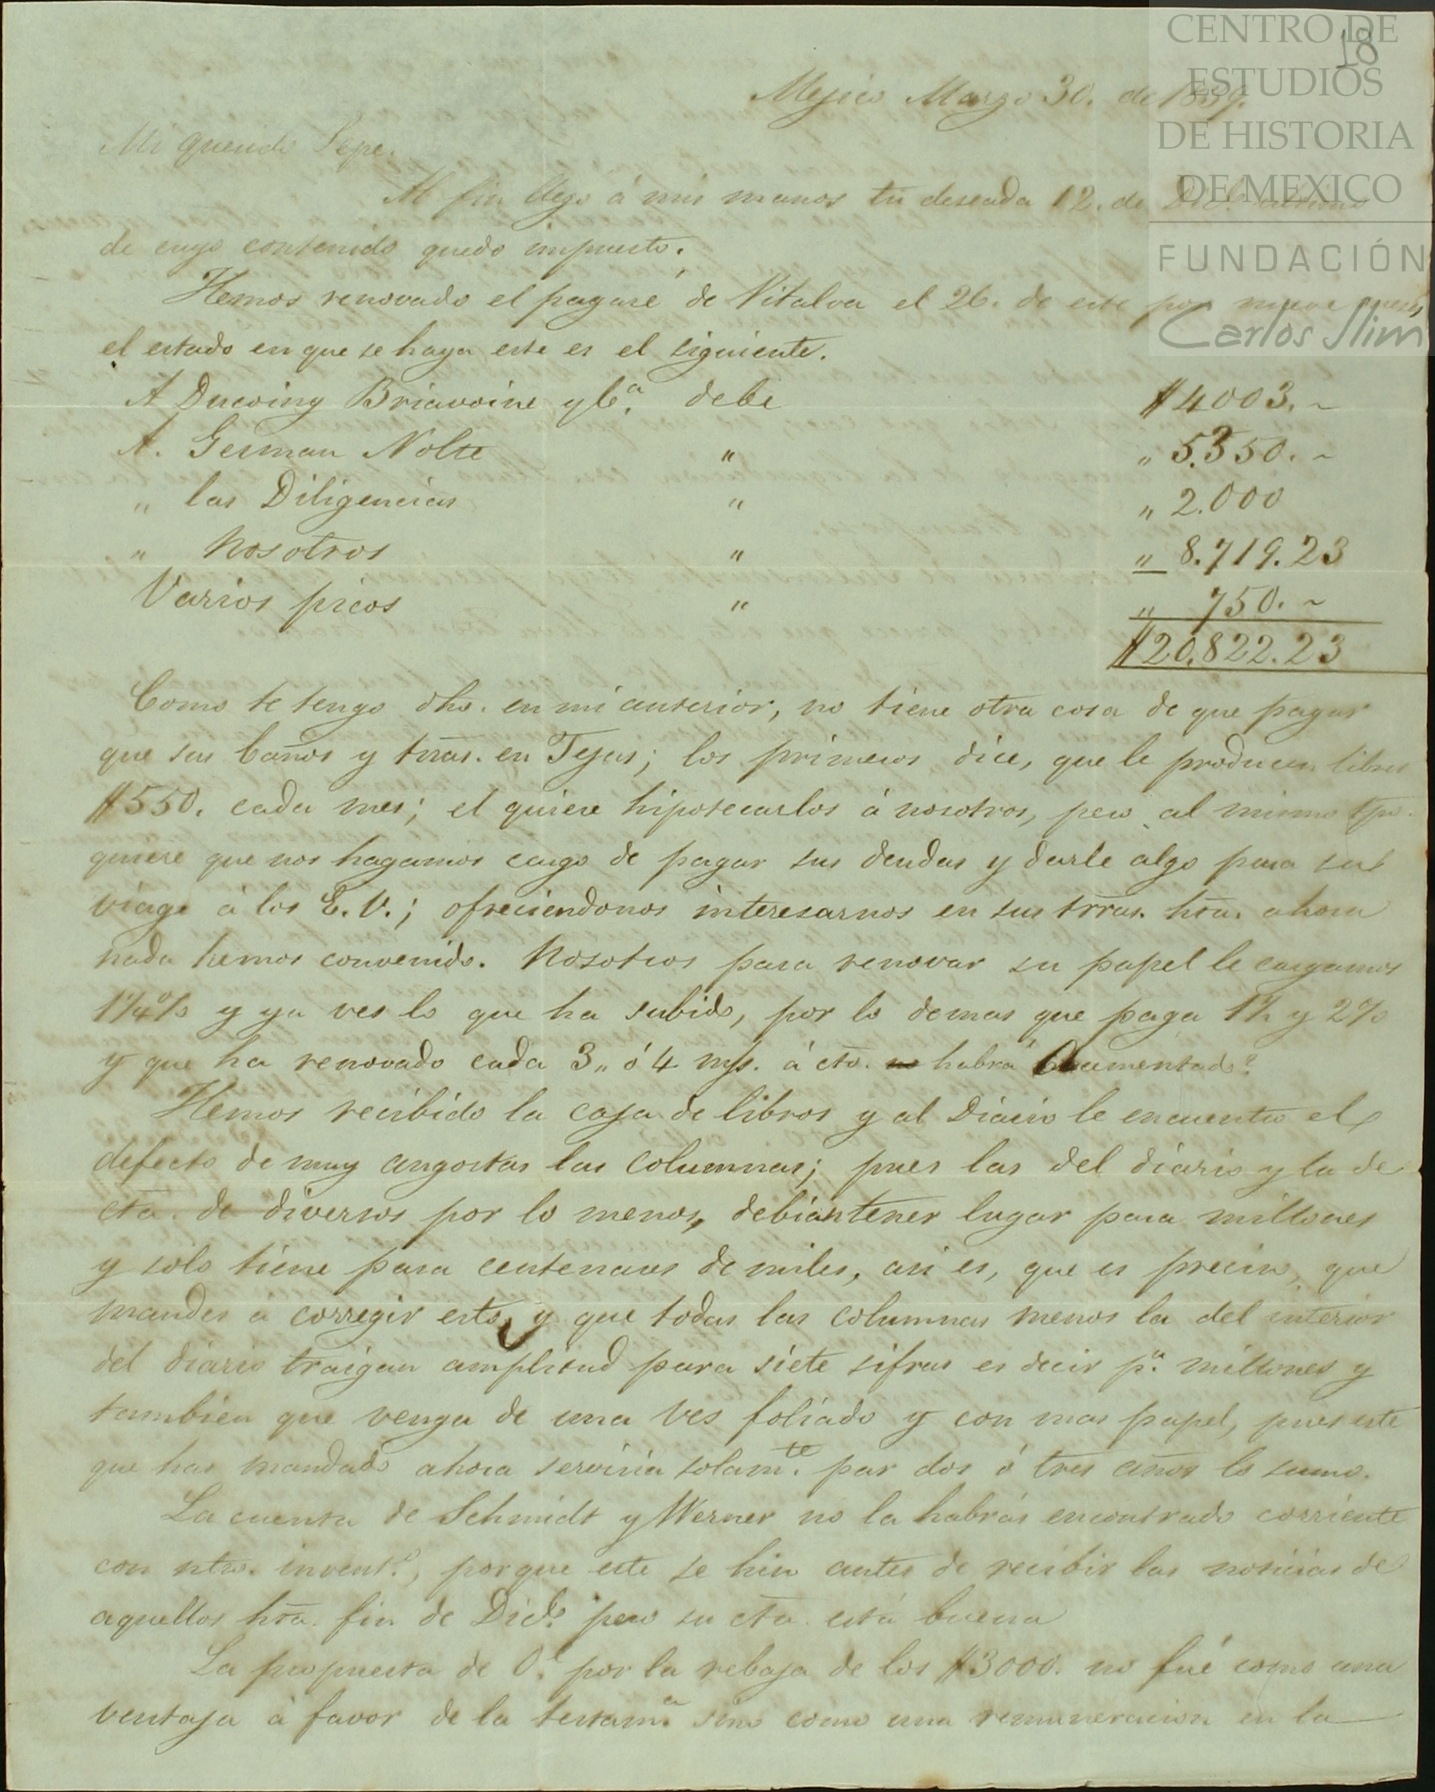 CENTRO DE
ESTUDIOS
DE HISTORIA
DE MEXICO
FUNDACIÓN
Carlos Slim
18
Mejico Marzo 30. de 1859.
Mi querido Pepe.
Al fin llegó á mis manos tu deseada 12. de Dic.e último
de cuyo contenido quedo impuesto.
Hemos renovado el pagaré de Vitalva el 26. de este por nueve meses,
el estado en que se haya este es el siguiente.
A Ducoing Briavoine y Ca. debe $4003. ~
A. German Nolte " " 5.350. ~
" las Diligencias " " 2.000
" Nosotros " " 8.719.23
Varios picos " " 750. ~
$20,822.23
Como te tengo dho. en mi anterior, no tiene otra cosa de que pagar
que sus baños y trras. en Tejas; los primeros dice, que le producen libres
$550. cada mes; el quiere hipotecarlos á nosotros, pero al mismo tpo.
quiere que nos hagamos cargo de pagar sus deudas y darle algo para su
viage á los E. U.; ofreciendonos interesarnos en sus trras. hta. ahora
nada hemos convenido. Nosotros para renovar su papel le cargamos
1¼% y ya ves lo que ha subido, por lo demas que paga 1½ y 2%
y que ha renovado cada 3,, ó 4 mss. á cto. habrá aumentado?
Hemos recibido la caja de libros y al Diario le encuentro el
defecto de muy angostas las columnas; pues las del diario y la de
cta. de diversos por lo menos, debian tener lugar para millones
y solo tiene para centenares de miles, asi es, que es preciso, que
mandes á corregir esto, y que todas las columnas menos la del interior
del diario traigan amplitud para siete sifras es decir pa. millones y
tambien que venga de una ves foliado y con mas papel, pues este
que has mandado ahora serviria solamte. par dos ó tres años lo sumo.
La cuenta de Schmidt y Werner no la habrás encontrado corriente
con ntro. invento., porque este se hizo antes de recibir las noticias de
aquellos hta. fin de Dice. pero su cta. está buena
La propuesta de O. por la rebaja de los $3000. no fué como una
ventaja á favor de la testama. sino como una remuneracion en la